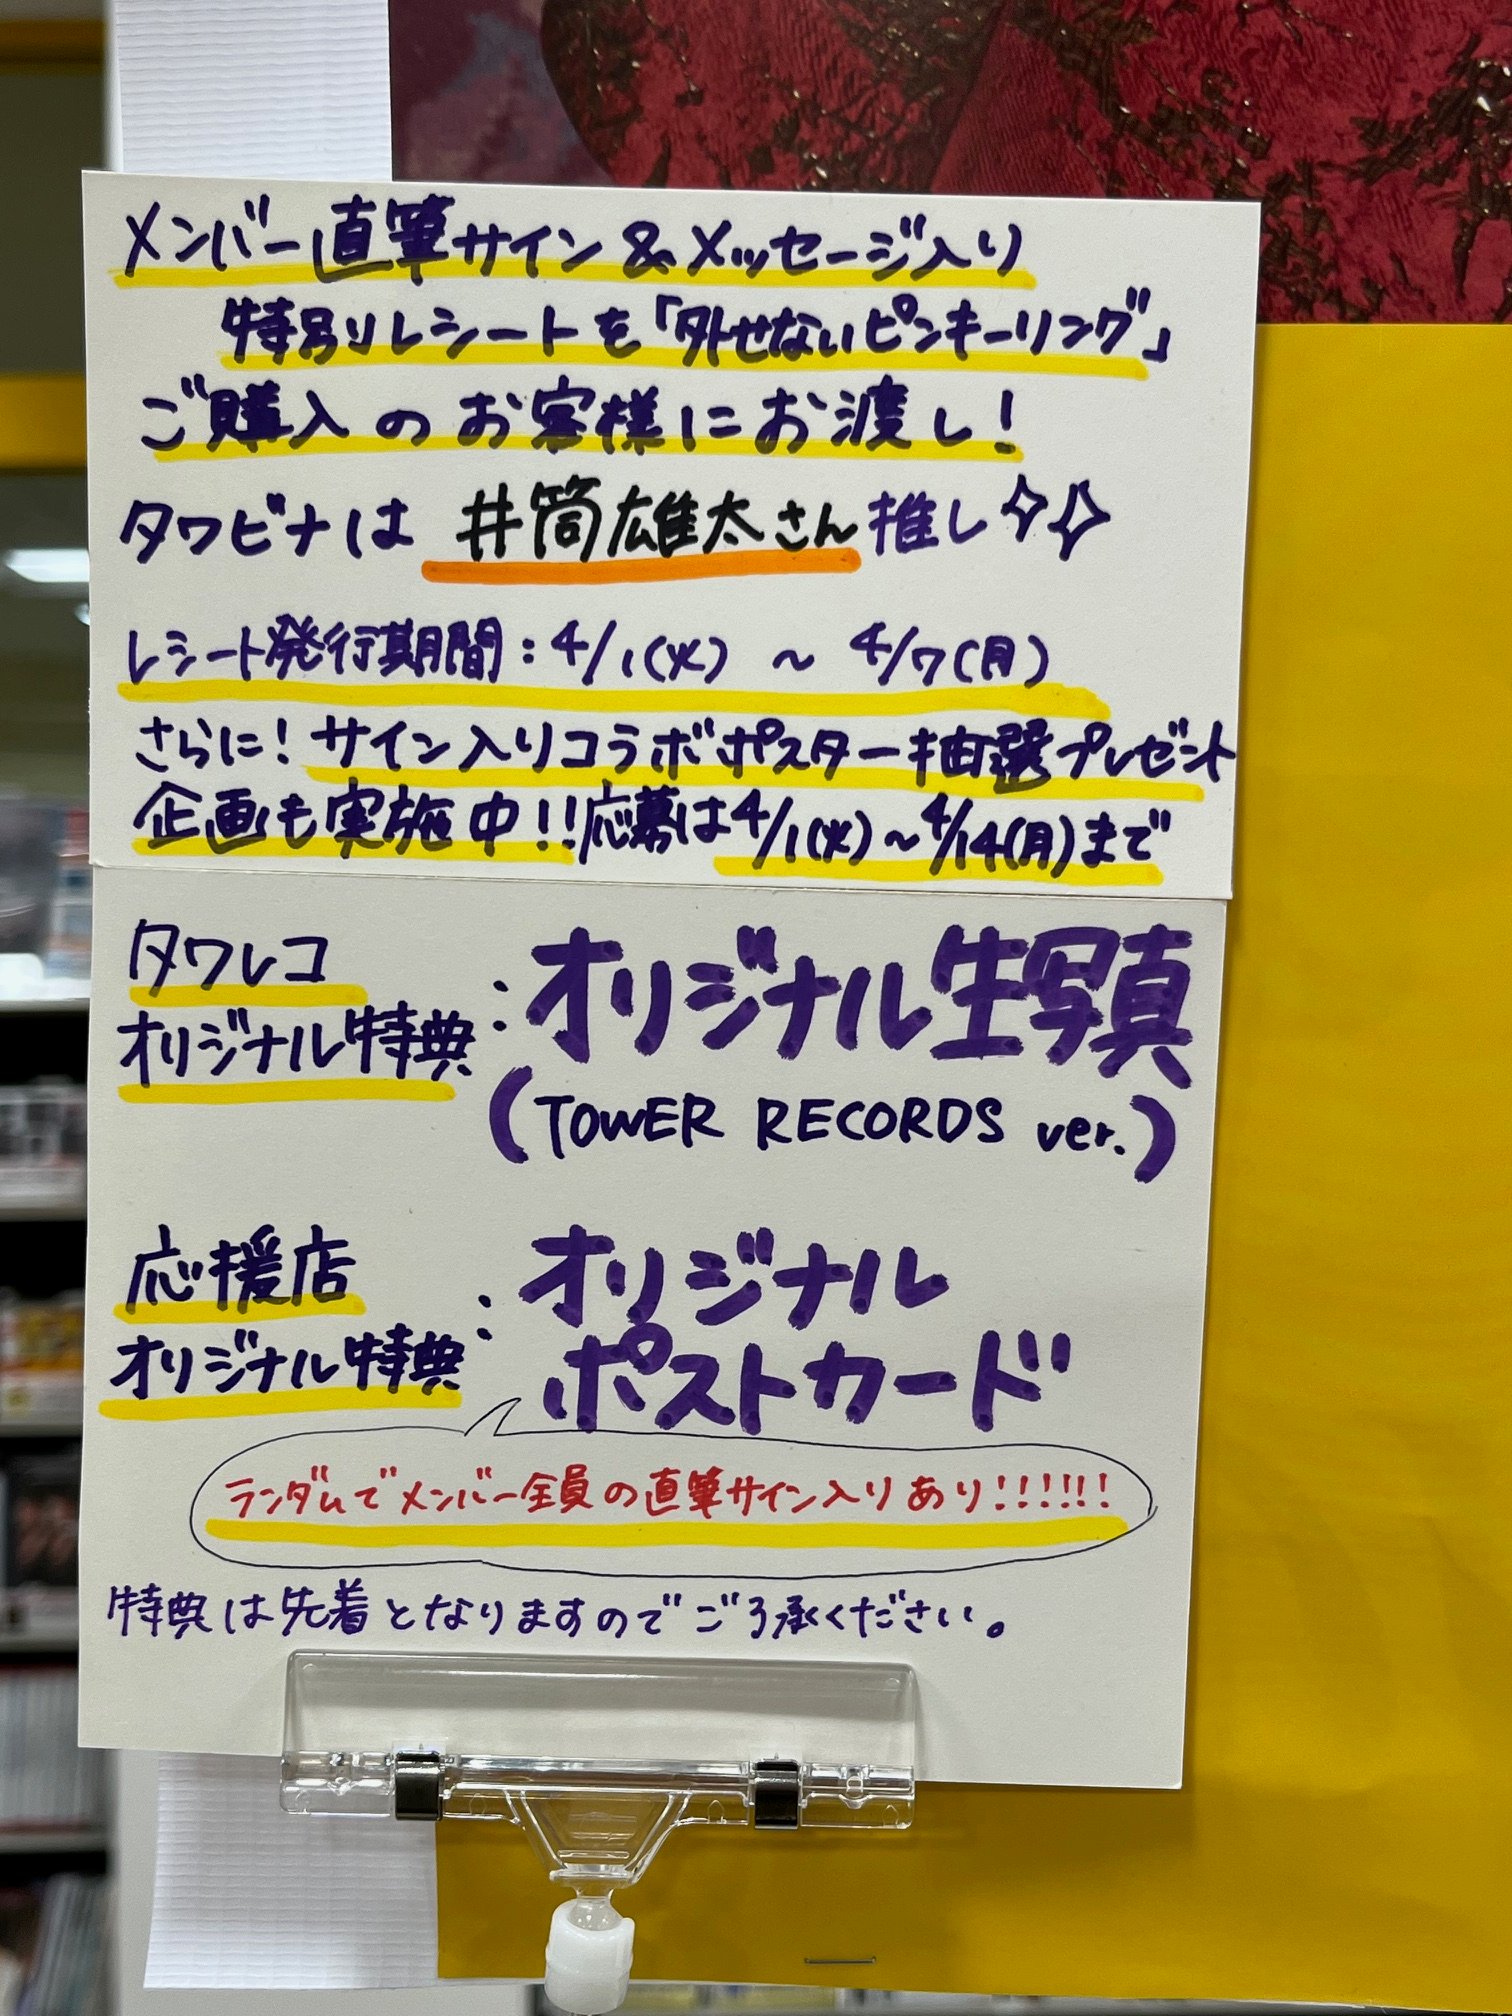 メンバー直筆サイン&メッセージ入り
特別レシートを「外せないピンキーリング」
ご購入のお客様にお渡し!
タワビナは 井筒雄太さん推し
レシート発行期間:4/1(火) ~ 4/7(月)
さらに!サイン入りコラボポスター抽選プレゼント
企画も実施中!!応募は4/1(火)~4/14(月)まで
タワレコ
オリジナル特典:オリジナル生写真
(TOWER RECORDS ver.)
応援店
オリジナル特典:オリジナル
ポストカード
ランダムでメンバー全員の直筆サイン入りあり!!!!!!
特典は先着となりますのでご了承ください。